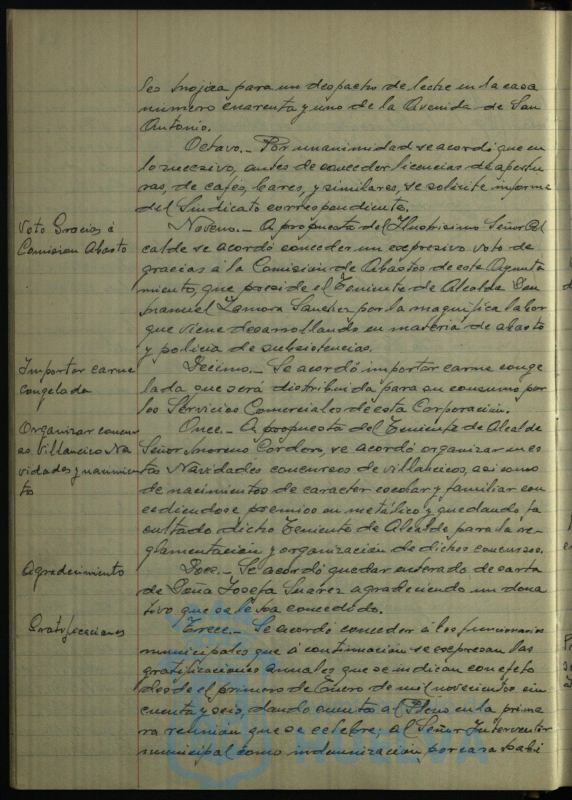 para un despacho de leche en la casa
numero cuarenta y uno de la Avenida de San
Antonio.
Octavo.- Por unanimidad se acordó que en
lo sucesivo, antes de conceder licencias de apertu
ras, de cafés, bares, y similares, se solicite informe
del Sindicato correspondiente.
Voto Gracias á
Comision Abasto
Noveno.- A propuesta del Ilustrisimo Señor Al
calde se acordó conceder un expresivo voto de
gracias á la Comision de Abastos de este Ayunta
miento, que preside el Teniente de Alcalde Don
Manuel Zamora Sanchez por la magnifica labor
que viene desarrollando en materia de abasto
y policia de subsistencias.
Importar carne
congelada
Decimo.- Se acordó importar carne conge
lada que será distribuida para su consumo por
los Servicios Comerciales de esta Corporacion.
Organizar concur
sos Villancicos Na
vidades y nacimien
to
Once.- A propuesta del Teniente de Alcalde
Señor Moreno Cordero, se acordó organizar en es
tas Navidades concursos de villancicos, asi como
de nacimientos de caracter escolar y familiar con
cediendose premios en metálico y quedando fa
cultado dicho Teniente de Alcalde para la re-
glamentacion y organizacion de dichos concursos.
Agradecimiento
Doce.- Se acordó quedar enterado de carta
de Doña Josefa Suarez agradeciendo un dona
tivo que se le ha concedido.
Gratificaciones
Trece.- Se acordó conceder á los funcionarios
municipales que á continuacion se expresan las
gratificaciones anuales que se indican con efecto
desde el primero de Enero de mil novecientos cin
cuenta y seis, dando cuenta al Pleno en la prime
ra reunión que se celebre; al Señor Interventor
municipal como indemnizacion por casa habi
HUELVA